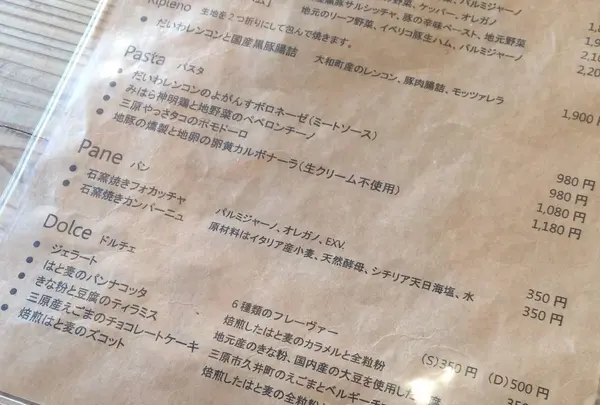 ケッパー、オレガノ
産黒豚サルシッチャ、豚の辛味ペースト、地元野菜
地元のリーフ野菜、イベリコ豚生ハム、パルミジャーノ
Ripieno
生地を2つ折りにして包んで焼きます。
だいわレンコンと国産黒豚腸詰 大和町産のレンコン、豚肉腸詰、モッツァレラ 1,900円
Pasta パスタ
だいわレンコンのよがんすボロネーゼ(ミートソース) 980円
みはら神明鶏と地野菜のペペロンチーノ 980円
三原やっさタコのポモドーロ 1,080円
地豚の燻製と地卵の卵黄カルボナーラ(生クリーム不使用) 1,180円
Pane パン
石窯焼きフォカッチャ パルミジャーノ、オレガノ、EXV. 350円
石窯焼きカンパーニュ 原材料はイタリア産小麦、天然酵母、シチリア天日海塩、水 350円
Dolce ドルチェ
ジェラート 6種類のフレーヴァー (S)350円 (D)500円
はと麦のパンナコッタ 焙煎したはと麦のカラメルと全粒粉
きな粉と豆腐のティラミス 地元産のきな粉、国内産の大豆を使用した
三原産えごまのチョコレートケーキ 三原市久井町のえごまとベルギーチョ
焙煎はと麦のズコット 焙煎したはと麦の全粒粉